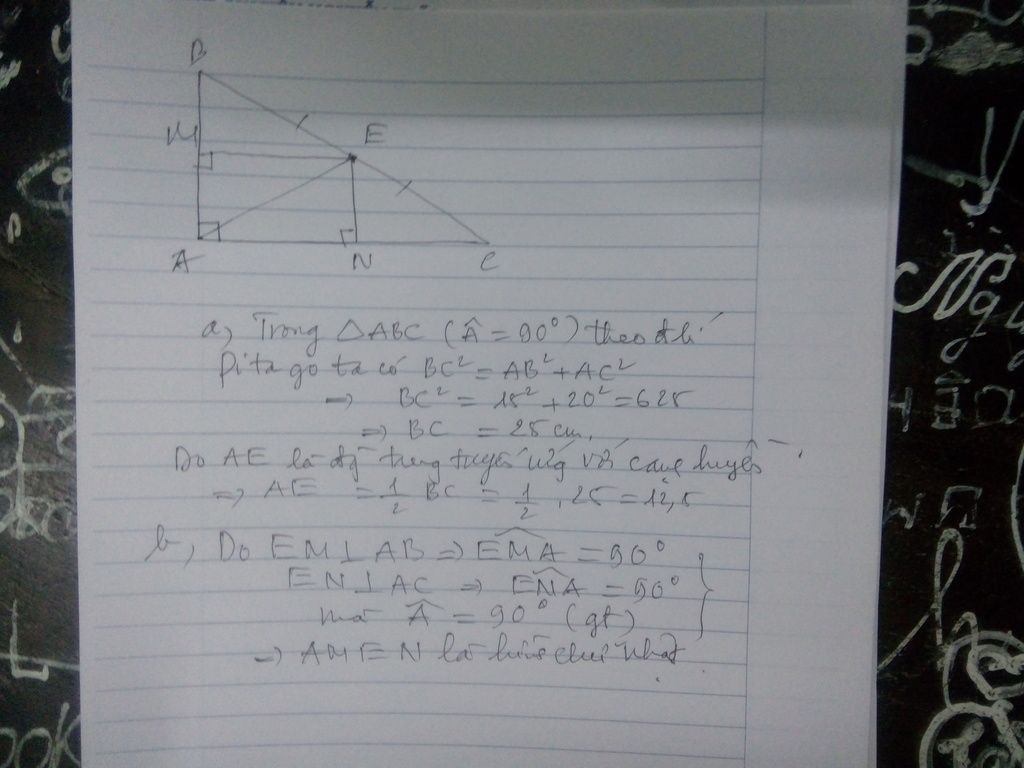 B
M
E
A
N
C
a, Trong △ABC (Â = 90°) theo đlí
Pitago ta có BC² = AB² + AC²
⇒ BC² = 15² + 20² = 625
⇒ BC = 25 cm.
Do AE là đg trung tuyến ứng với cạnh huyền
⇒ AE = 1/2 BC = 1/2 . 25 = 12,5
b, Do EM ⊥ AB ⇒ EMA = 90°
EN ⊥ AC ⇒ ENA = 90°
mà Â = 90° (gt)
⇒ AMEN là hình chữ nhật.